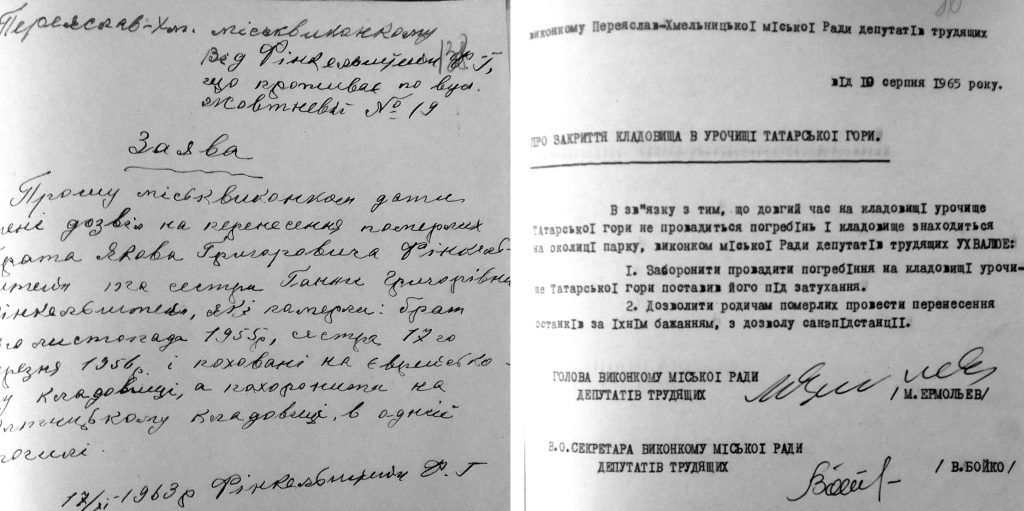 Переяслав-Хм. міськвиконкому
Від Фінкельштейн Ф. Г,
що проживає по вул.
Жовтневій № 19
Заява
Прошу міськвиконком дати
мені дозвіл на перенесення померлих
брата Якова Григоровича
та сестра Ганни Григорівни
які померли: брат
листопада 1955р, сестра 17го
березня 1956р. і поховані на єврейсько-
му кладовищі, а похоронити на
кладовищі, в одній
могилі.
17/XI-1963р Фінкельштейн Ф. Г
138
10
виконкому Переяслав-Хмельницької міської Ради депутатів трудящих
від 19 серпня 1965 року.
ПРО ЗАКРИТТЯ КЛАДОВИЩА В УРОЧИЩІ ТАТАРСЬКОЇ ГОРИ.
В зв"язку з тим, що довгий час на кладовищі урочище
Татарської гори не провадиться погребінь і кладовище знаходиться
на околиці парку, виконком міської Ради депутатів трудящих УХВАЛЮЄ:
І. Заборонити провадити погребіння на кладовищі урочи-
ще Татарської гори поставив його під затухання.
2. Дозволити родичам померлих провести перенесення
останків за їхнім бажанням, з дозволу санепідстанції.
ГОЛОВА ВИКОНКОМУ МІСЬКОЇ РАДИ
ДЕПУТАТІВ ТРУДЯЩИХ /М.ЕРМОЛЬЕВ/
В.О.СЕКРЕТАРА ВИКОНКОМУ МІСЬКОЇ РАДИ
ДЕПУТАТІВ ТРУДЯЩИХ /В.БОЙКО/